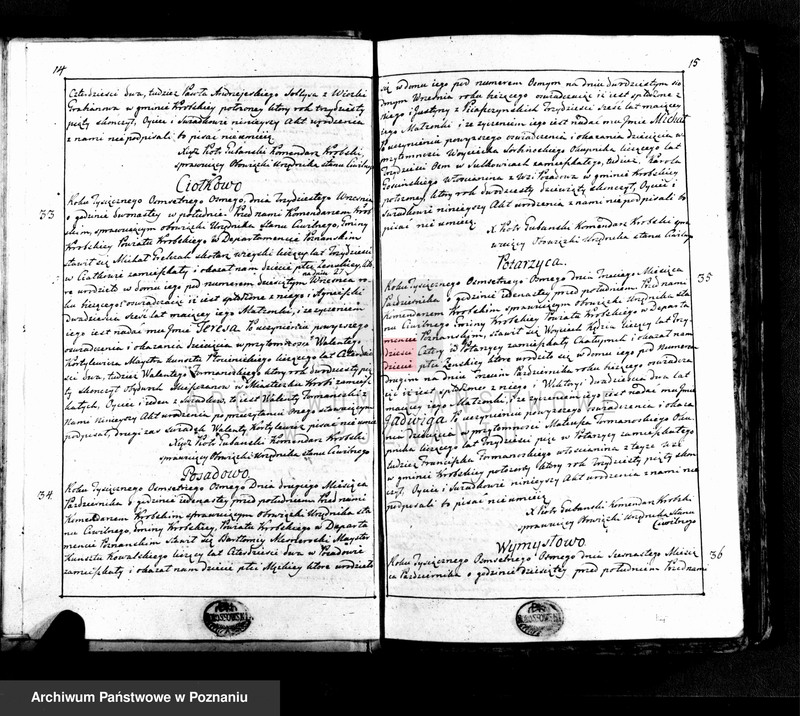 14
Czterdzieści dwa, tudzież Pawła Andrzejeskiego Sołtysa z Wioski
w gminie Krobskiey położoney który rok trzydziesty
piąty skończył, Oyciec i Swiadkowie ninieyszy Akt urodzenia
z nami nie podpisali bo pisać nie umieią
Xiądz Piotr Gubanski Komendarz Krobski
sprawuiący Obowiązki Urzędnika stanu Cywilnego
Ciołkowo
33
Roku Tysiącznego Osmsetnego Osmego, dnia Trzydziestego Wrzesnia
o godzinie dwunastey w południe. Przed nami Komendarzem Krob
skim, sprawuiącym obowiązki Urzędnika Stanu Cywilnego, Gminy
Krobskiey Powiatu Krobskiego w Departamencie Poznanskim
stawił się Michał skotarz wieyski liczący lat Trzydzieści
w Ciołkowie zamieszkały i okazał nam dziecie płci Zenskiey, któ
re urodziło w domu iego pod numerem dziesiątym na dniu 27 Wrzesnia ro
ku bieżącego oswiadczaiąc iż iest spłodzone z niego i Agnieszki
dwadzieścia sześć lat maiącey iego Małzonki, i ze życzeniem
iego iest nadać mu Jmie Teresa Po uczynieniu powyższego
oswiadczenia i okazania dziecięcia w przytomnosci Walentego
Kortylewicza Maystra kunsztu liczącego lat Czterdzie
ści dwa, tudzież Walentego Tomanskiego który rok dwudziesty pią
ty skonczył w Miasteczku Krobi zamiesz
kałych, Oyciec i ieden z swiadków, to iest Walenty Tomanski
Nami ninieyszy Akt urodzenia po przeczytaniu onego stawaiącym
podpisał, drugi zas swiadek Walenty Kortylewicz pisać nie umie
Xiądz Piotr Gubanski Komendarz Krobski
sprawuiący Obowiązki Urzędnika stanu Cywilnego
Posadowo
34
Roku Tysiącznego Osmsetnego Osmego Dnia drugiego Miesiąca
Pazdziernika o godzinie iedenastey przed południem Przed nami
Komendarzem Krobskim sprawuiącym obowiązki Urzędnika sta
nu Cywilnego, Gminy Krobskiey, Powiatu Krobskiego w Departa
mencie Poznanskim stawił się Bartłomiy Maystr
kunsztu Kowalskiego liczący lat Czterdzieści dwa w Posadowie
zamieszkały i okazał nam dziecie płci Męskiey które urodziło
15
się w domu iego pod numerem Osmym na dniu dwudziestym sio
dmym Wrzesnia roku bieżącego oswiadczaiąc iż iest spłodzone z
niego i Justyny z Trzydzieści sześć lat maiącey
iego Małzonki, i ze życzeniem iego iest nadać mu Jmie Michał
Po uczynieniu powyższego oswiadczenia i okazania dziecięcia w
przytomnosci Woyciecha Okupnika liczącego lat
Trzydzieści Osm w Sułkowicach zamieszkałego, tudzież Karola
włoscianina z Wsi w gminie Krobskiey
położoney, który rok dwudziesty dziewiąty skonczył, Oyciec i
Swiadkowie ninieyszy Akt urodzenia z nami nie podpisali bo
pisać nie umieią
X Piotr Gubanski Komendarz Krobski spra
wuiący Obowiązki Urzędnika stanu Cywilnego
Potarzyca.
35
Roku Tysiącznego Osmsetnego Osmego dnia Trzeciego Miesiąca
Pazdziernika o godzinie iedenastey, przed południem Przed nami
Komendarzem Krobskim sprawuiącym obowiązki Urzędnika sta
nu Cywilnego Gminy Krobskiey Powiatu Krobskiego w Departa
mencie Poznanskim, stawił się Woyciech Kędzia liczący lat Trzy
dzieści Cztery w Potarzycy zamieszkały Chałupnik i okazał nam
dziecie płci Zenskiey, które urodziło się w domu iego pod Numerem
drugim na dniu Trzecim Pazdziernika roku bieżącego oswiadcza
iąc iż iest spłodzone z niego, i Wiktoryi dwadzieścia dwa lat
maiącey iego Małzonki, i ze życzeniem iego iest nadać mu Jmie
Jadwiga Po uczynieniu powyższego oswiadczenia i okaza
nia Dziecięcia w przytomnosci Mateusza Tomanskiego Oku
pnika liczącego lat Trzydzieści pięć w Potarzycy zamieszkałego
tudzież Franciszka Tomanskiego włoscianina z teyże wsi
w gminie Krobskiey położoney który rok Trzydziesty piąty skon
czył, Oyciec i Swiadkowie ninieyszy Akt urodzenia z nami nie
podpisali bo pisać nie umieią
X Piotr Gubanski Komendarz Krobski
sprawuiący Obowiązki Urzędnika Stanu
Cywilnego
Wymysłowo
36
Roku Tysiącznego Osmsetnego Osmego Dnia Szesnastego Miesią
ca Pazdziernika o godzinie dziesiątey przed południem Przed nami
Archiwum Państwowe w Poznaniu